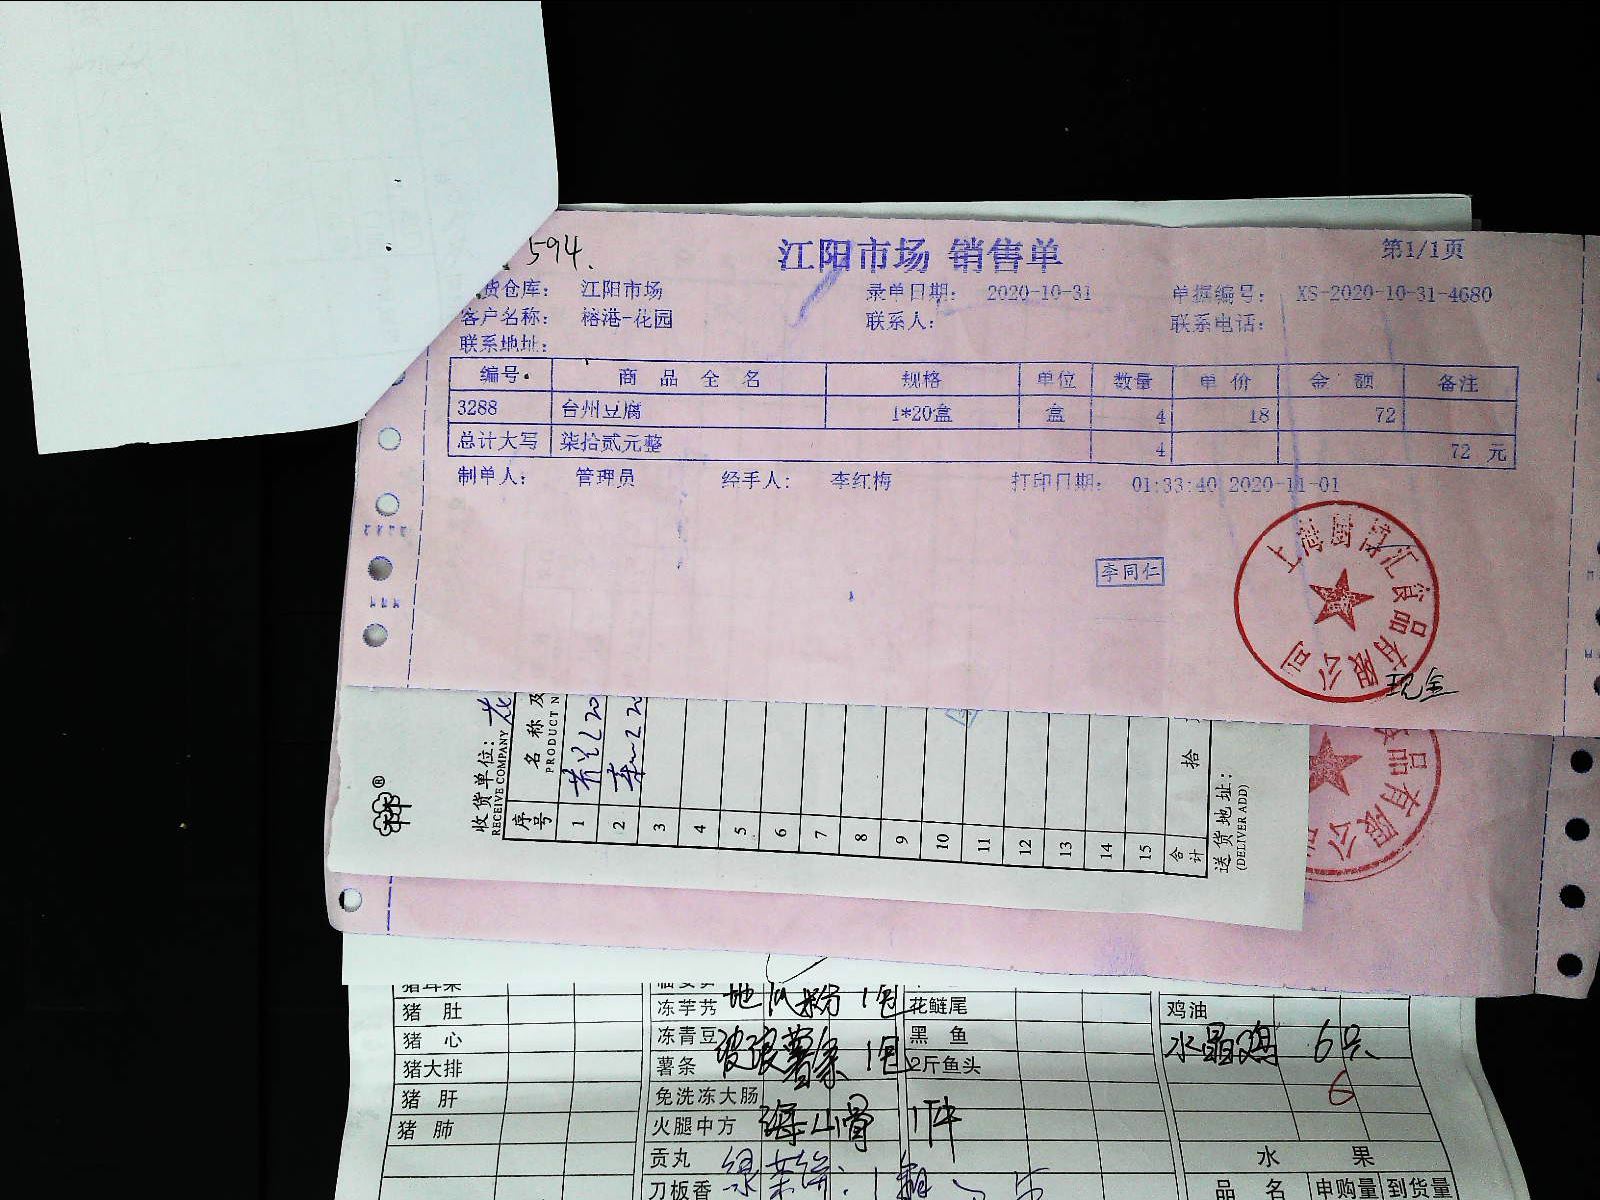 594.
江阳市场 销售单
第1/1页
货仓库： 江阳市场 录单日期： 2020-10-31 单据编号： XS-2020-10-31-4680
客户名称： 榕港-花园 联系人： 联系电话：
联系地址：
编号 商品全名 规格 单位 数量 单价 金额 备注
3288 台州豆腐 1*20盒 盒 4 18 72
总计大写 柒拾贰元整 4 72 元
制单人： 管理员 经手人： 李红梅 打印日期： 01:33:40 2020-11-01
李同仁
上海厨博汇食品有限公司
现金
收货单位：花
RECEIVE COMPANY
序号 名称及
PRODUCT N
1
2
3
4
5
6
7
8
9
10
11
12
13
14
15
合计 拾
送货地址：
(DELIVER ADD)
品有限公
猪肚 冻芋艿 地瓜粉 1包 花鲢尾 鸡油
猪心 冻青豆 波浪薯条 1包 黑鱼 水晶鸡 6只
猪大排 薯条 2斤鱼头
猪肝 免洗冻大肠 6
猪肺 火腿中方 海山骨 1件
贡丸 绿茶饼 水果
刀板香 品名 申购量 到货量